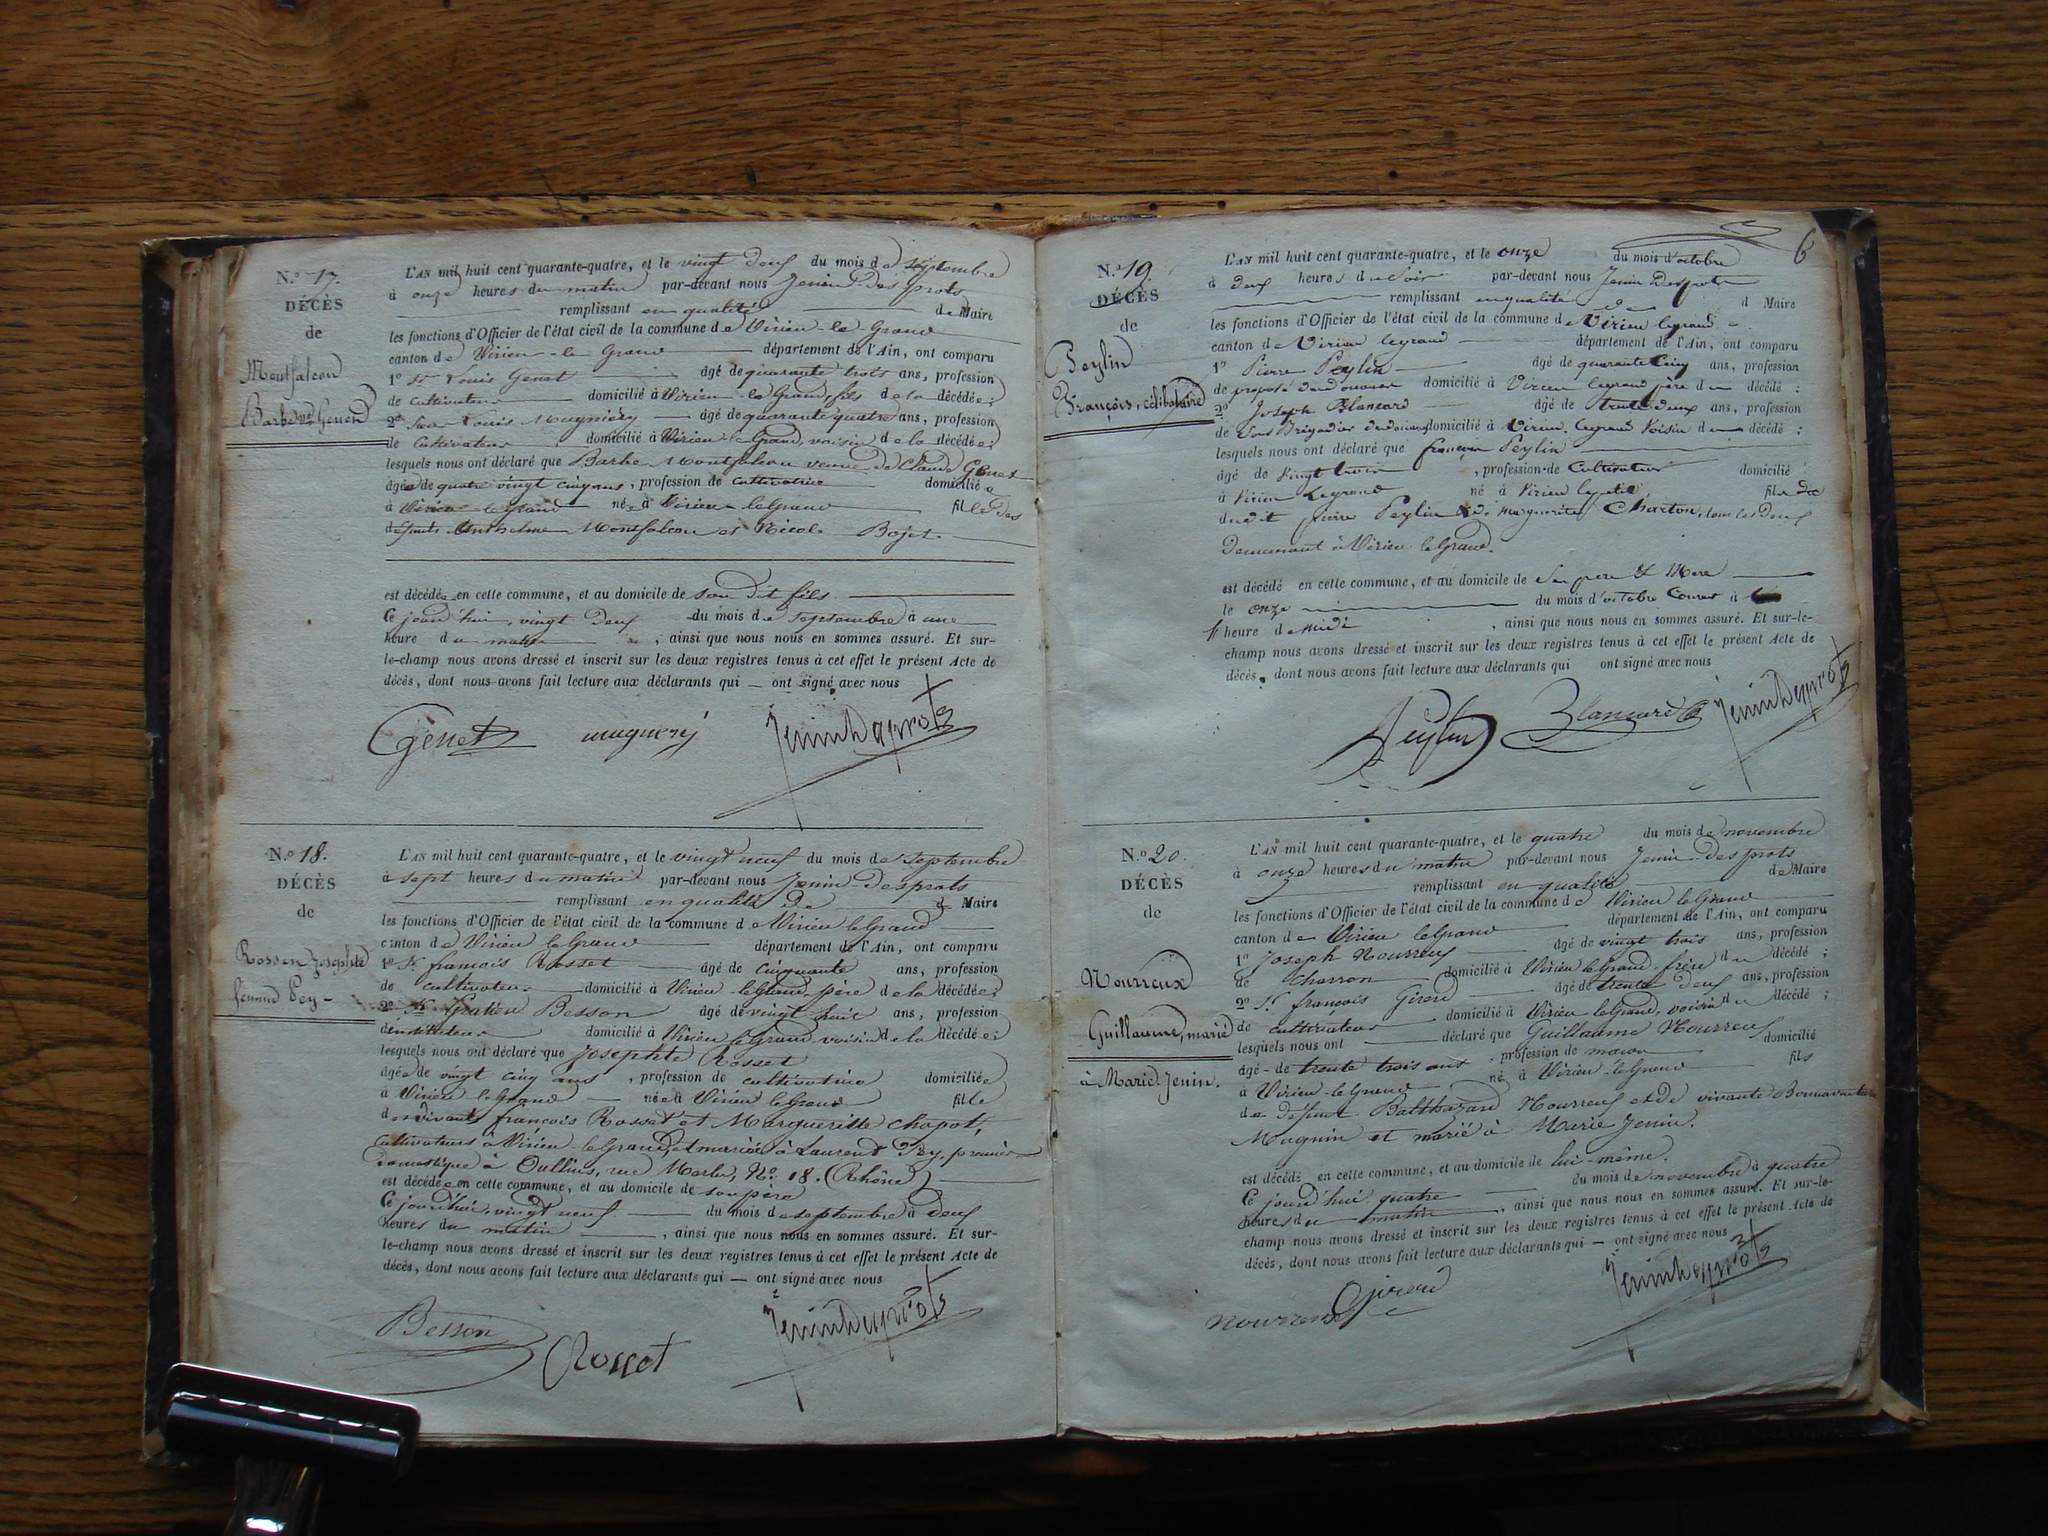 N.° 17.
DÉCÈS
de
Montfalcon
Barbe ve Genet
L'AN mil huit cent quarante-quatre, et le vingt deux du mois de septembre
à onze heures du matin par-devant nous Jenin Desprots
remplissant en qualité de Maire
les fonctions d'Officier de l'état civil de la commune de Virieu-le-Grand
canton de Virieu-le-Grand département de l'Ain, ont comparu
1° Sr Louis Genet âgé de quarante trois ans, profession
de cultivateur domicilié à Virieu-le-Grand, fils de la décédée;
2° Louis Mugniery âgé de quarante quatre ans, profession
de cultivateur domicilié à Virieu-le-Grand, voisin de la décédée;
lesquels nous ont déclaré que Barbe Montfalcon veuve de Claude Genet
âgée de quatre vingt cinq ans, profession de cultivatrice domiciliée
à Virieu-le-Grand née à Virieu-le-Grand fille des
défunts Anthelme Montfalcon et Nicole Bojet.
est décédée en cette commune, et au domicile de son dit fils
Ce jourd'hui, vingt deux du mois de septembre à une
heure du matin, ainsi que nous nous en sommes assuré. Et sur-
le-champ nous avons dressé et inscrit sur les deux registres tenus à cet effet le présent Acte de
décès, dont nous avons fait lecture aux déclarants qui — ont signé avec nous
Genet mugnery Jenin Desprots
N.° 18.
DÉCÈS
de
Josephte
femme Pey
L'AN mil huit cent quarante-quatre, et le vingt neuf du mois de septembre
à sept heures du matin par-devant nous Jenin Desprots
remplissant en qualité de Maire
les fonctions d'Officier de l'état civil de la commune de Virieu le Grand
canton de Virieu le Grand département de l'Ain, ont comparu
1° Sr françois Rosset âgé de cinquante ans, profession
de cultivateur domicilié à Virieu-le-Grand père de la décédée;
2° Sr Besson âgé de vingt huit ans, profession
d'instituteur domicilié à Virieu le Grand, voisin de la décédée;
lesquels nous ont déclaré que Josephte Rosset
âgée de vingt cinq ans, profession de cultivatrice domiciliée
à Virieu le Grand née à Virieu le Grand fille
des vivants françois Rosset et Margueritte Chapot,
Cultivateurs à Virieu-le-Grand, et mariée à Laurent Pey, premier
Domestique à Oullins, rue Merlu, N° 18. (Rhône)
est décédée en cette commune, et au domicile de son père
Ce jourd'hui, vingt neuf du mois de septembre à deux
heures du matin, ainsi que nous nous en sommes assuré. Et sur-
le-champ nous avons dressé et inscrit sur les deux registres tenus à cet effet le présent Acte de
décès, dont nous avons fait lecture aux déclarants qui — ont signé avec nous
Besson Rosset Jenin Desprots
6
N.° 19.
DÉCÈS
de
Peylin
François, célibataire
L'AN mil huit cent quarante-quatre, et le onze du mois d'octobre
à deux heures du soir par-devant nous Jenin Desprots
remplissant en qualité de Maire
les fonctions d'Officier de l'état civil de la commune de Virieu legrand
canton de Virieu legrand département de l'Ain, ont comparu
1° Pierre Peylin âgé de quarante cinq ans, profession
de préposé des douanes domicilié à Virieu legrand père du décédé;
2° Joseph Blancard âgé de trente deux ans, profession
de sous Brigadier des douanes domicilié à Virieu legrand voisin du décédé;
lesquels nous ont déclaré que françois Peylin
âgé de vingt trois, profession de cultivateur domicilié
à Virieu Legrand né à Virieu le petit fils
dudit pierre Peylin & de marguerite Charton, tous les deux
Demeurant à Virieu-le-Grand.
est décédé en cette commune, et au domicile de Ses pere & Mere
le onze du mois d'octobre Courant à
heure de midi, ainsi que nous nous en sommes assuré. Et sur-le-
champ nous avons dressé et inscrit sur les deux registres tenus à cet effet le présent Acte de
décès, dont nous avons fait lecture aux déclarants qui ont signé avec nous
Peylin Blancard Jenin Desprots
N.° 20.
DÉCÈS
de
Nourreux
Guillaume, marié
à Marie Jenin.
L'AN mil huit cent quarante-quatre, et le quatre du mois de novembre
à onze heures du matin par-devant nous Jenin-Desprots
remplissant en qualité de Maire
les fonctions d'Officier de l'état civil de la commune de Virieu le Grand
canton de Virieu leGrand département de l'Ain, ont comparu
1° Joseph Nourreux âgé de vingt trois ans, profession
de charron domicilié à Virieu le Grand frère du décédé;
2° Sr françois Girerd âgé de trente deux ans, profession
de cultivateur domicilié à Virieu leGrand, voisin du décédé;
lesquels nous ont déclaré que Guillaume Nourreux
âgé de trente trois ans, profession de maçon domicilié
à Virieu-le-Grand né à Virieu-le-Grand fils
de défunt Balthazard Nourreux et de vivante Bonnaventure
Magnin et marié à Marie Jenin.
est décédé en cette commune, et au domicile de lui-même.
Ce jourd'hui quatre du mois de novembre à quatre
heures du matin, ainsi que nous nous en sommes assuré. Et sur-le-
champ nous avons dressé et inscrit sur les deux registres tenus à cet effet le présent Acte de
décès, dont nous avons fait lecture aux déclarants qui — ont signé avec nous
nourreux Girerd Jenin Desprots